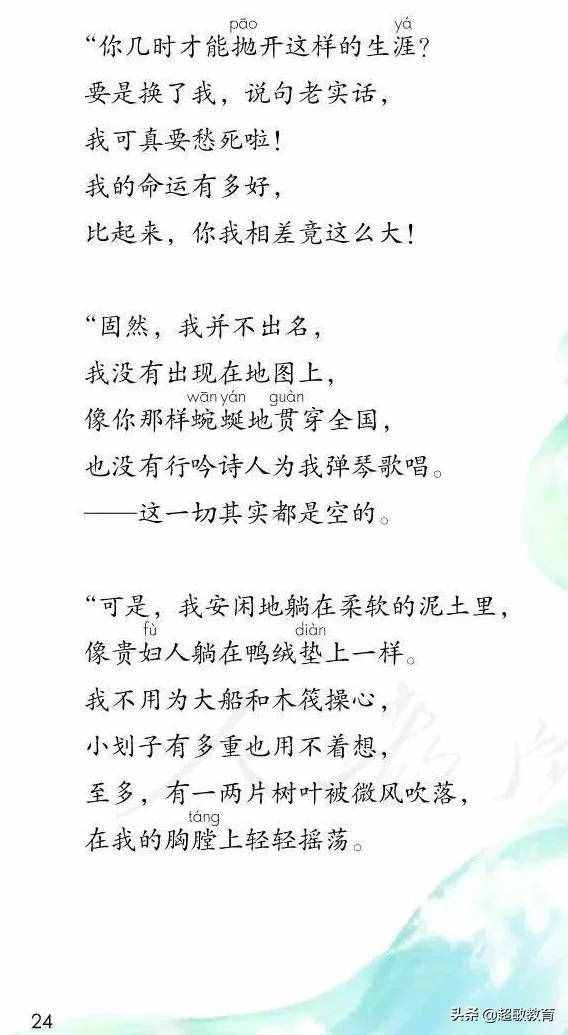 pāo yá
“你几时才能抛开这样的生涯？
要是换了我，说句老实话，
我可真要愁死啦！
我的命运有多好，
比起来，你我相差竟这么大！
“固然，我并不出名，
我没有出现在地图上，
wān yán guàn
像你那样蜿蜒地贯穿全国，
也没有行吟诗人为我弹琴歌唱。
——这一切其实都是空的。
“可是，我安闲地躺在柔软的泥土里，
fù diàn
像贵妇人躺在鸭绒垫上一样。
我不用为大船和木筏操心，
小划子有多重也用不着想，
至多，有一两片树叶被微风吹落，
táng
在我的胸膛上轻轻摇荡。
人教
24
头条 @超歌教育